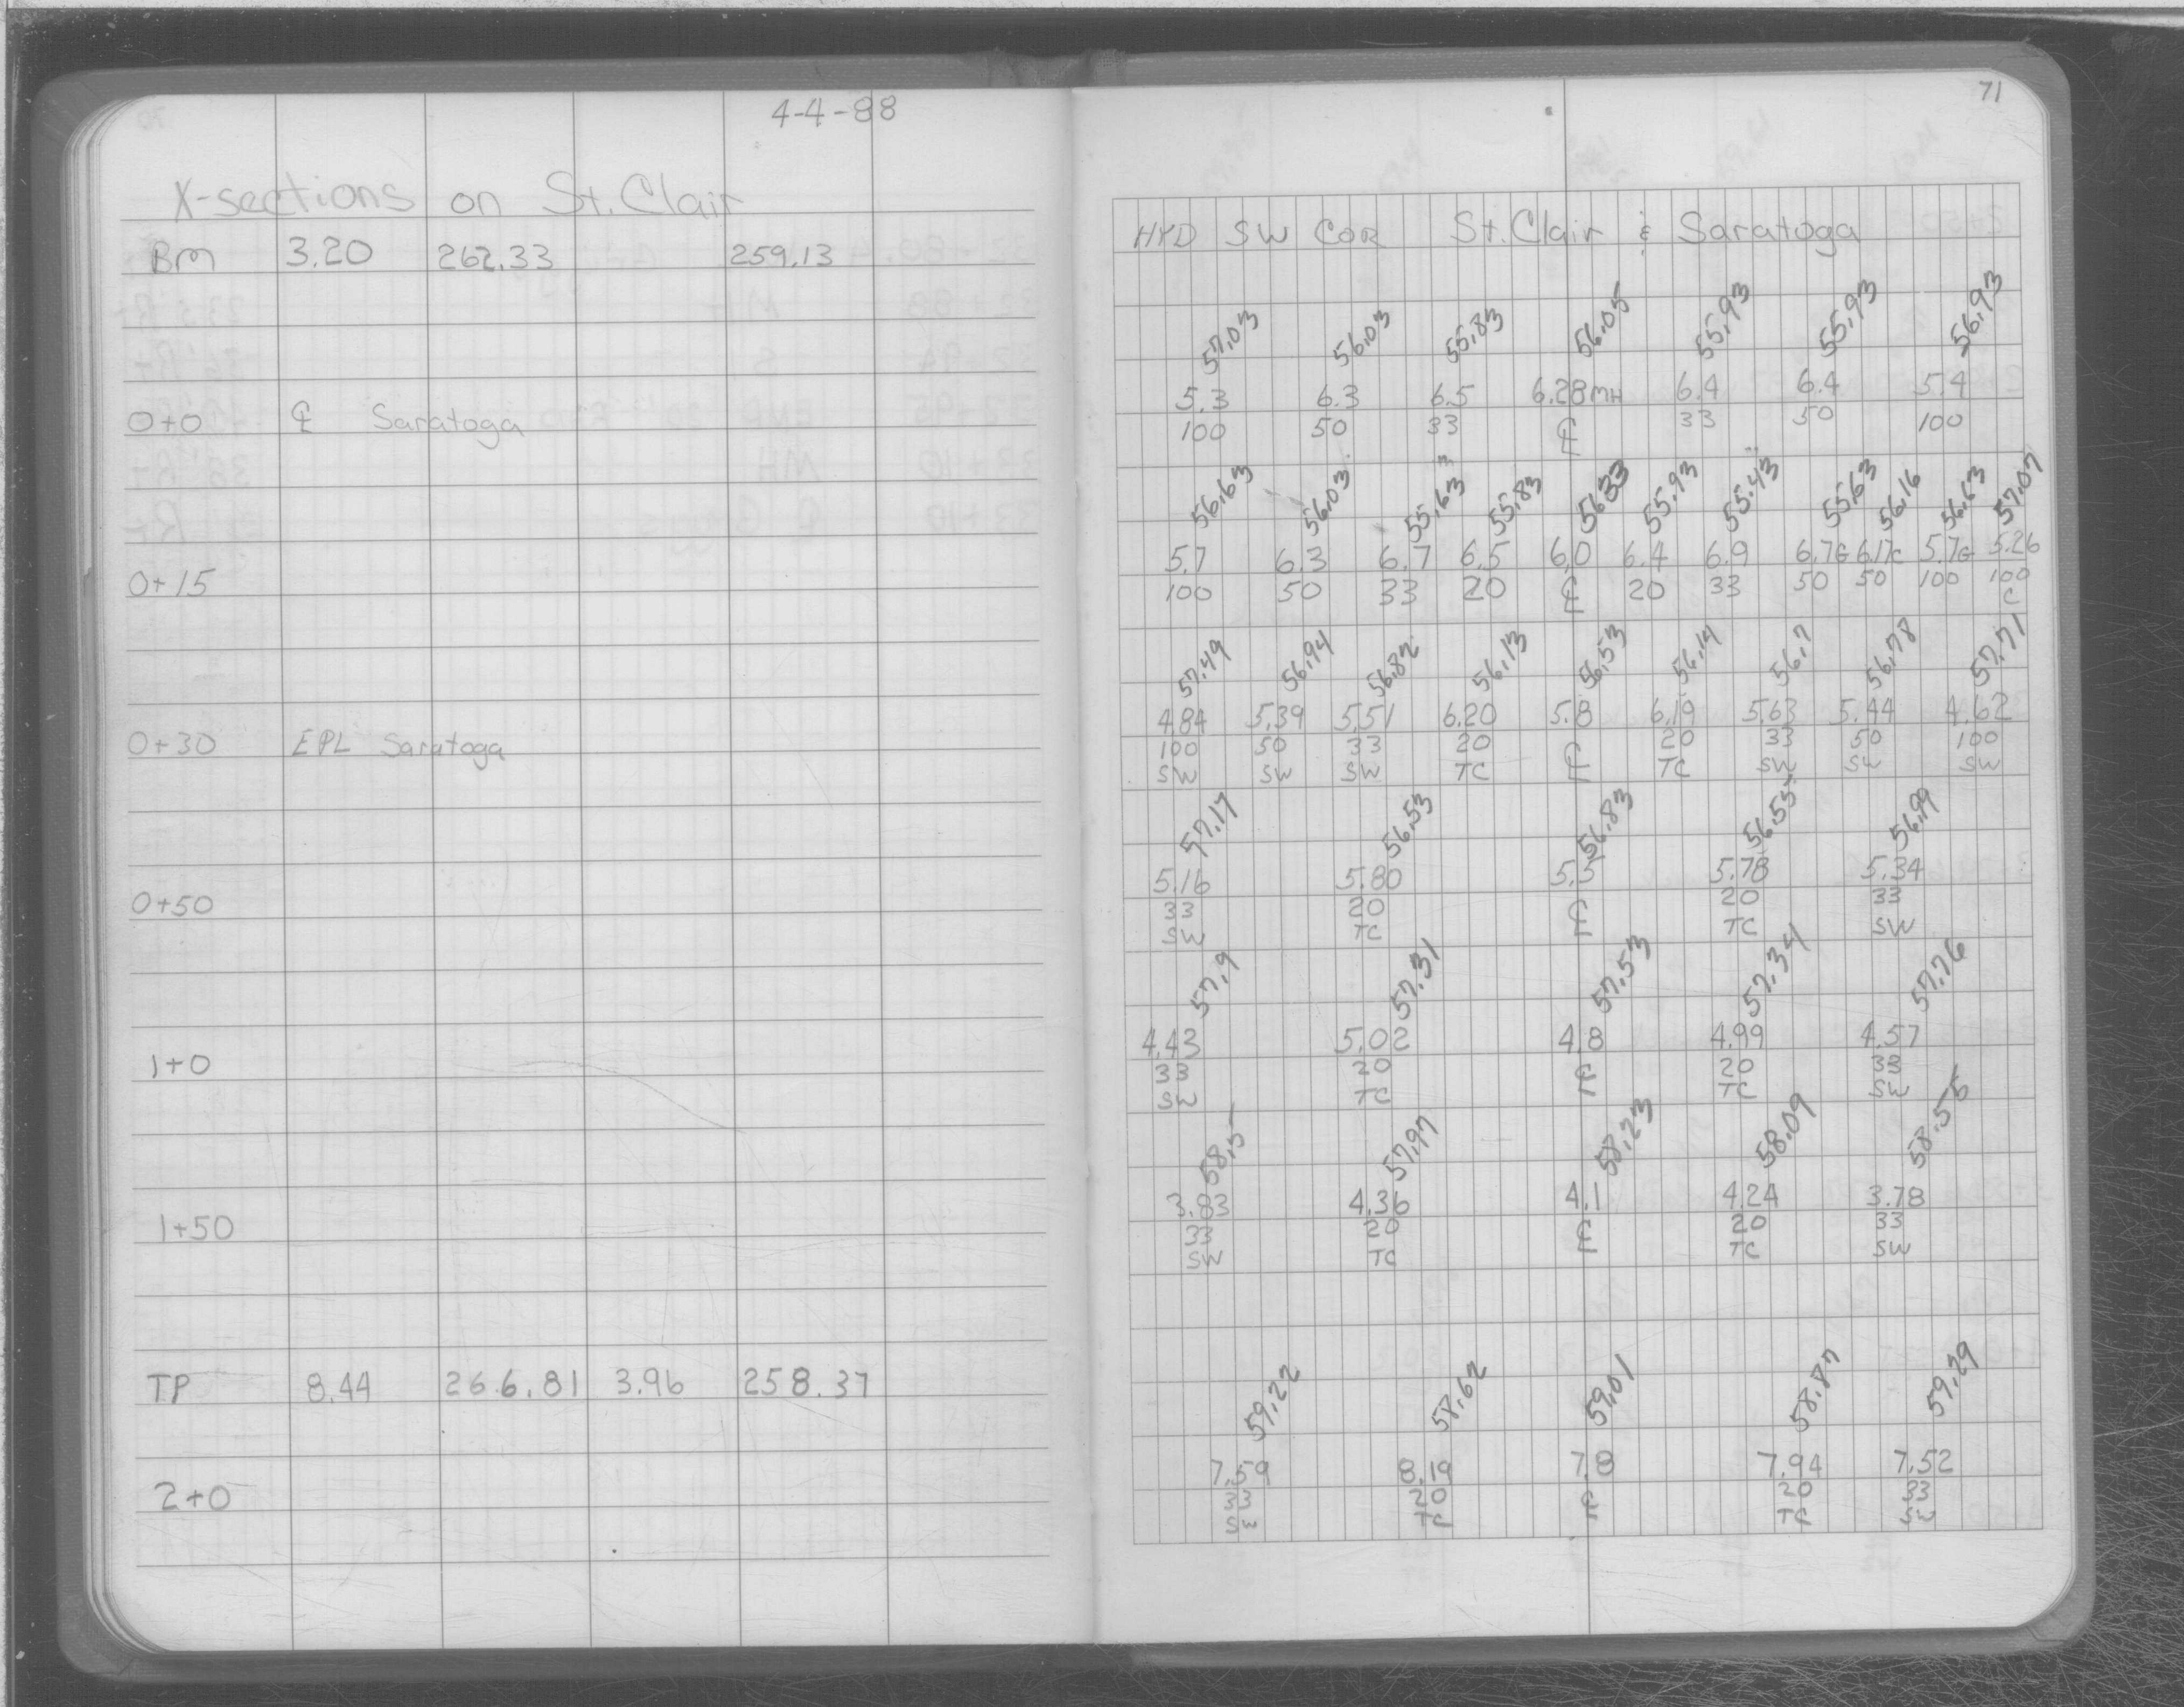 4-4-88
X-sections on St. Clair
BM 3.20 262.33 259.13
0+0 ℄ Saratoga
0+15
0+30 EPL Saratoga
0+50
1+0
1+50
TP 8.44 266.81 3.96 258.37
2+0
71
HYD SW COR St. Clair & Saratoga
57.03 56.03 55.83 56.05 55.93 55.93 56.93
5.3 6.3 6.5 6.28MH 6.4 6.4 5.4
100 50 33 ℄ 33 50 100
56.63 56.03 55.63 55.83 56.33 55.93 55.43 55.63 56.16 56.63 57.07
5.7 6.3 6.7 6.5 6.0 6.4 6.9 6.7G 6.17C 5.7G 5.26
100 50 33 20 ℄ 20 33 50 50 100 100
C
57.49 56.94 56.82 56.13 56.53 56.14 56.7 56.78 57.71
4.84 5.39 5.51 6.20 5.8 6.19 5.63 5.44 4.62
100 50 33 20 ℄ 20 33 50 100
SW SW SW TC TC SW SW SW
57.17 56.53 56.83 56.55 56.99
5.16 5.80 5.5 5.78 5.34
33 20 ℄ 20 33
SW TC TC SW
57.9 57.31 57.53 57.34 57.76
4.43 5.02 4.8 4.99 4.57
33 20 ℄ 20 33
SW TC TC SW
58.5 57.97 58.23 58.09 58.55
3.83 4.36 4.1 4.24 3.78
33 20 ℄ 20 33
SW TC TC SW
59.22 58.62 59.01 58.87 59.29
7.59 8.19 7.8 7.94 7.52
33 20 ℄ 20 33
SW TC TC SW